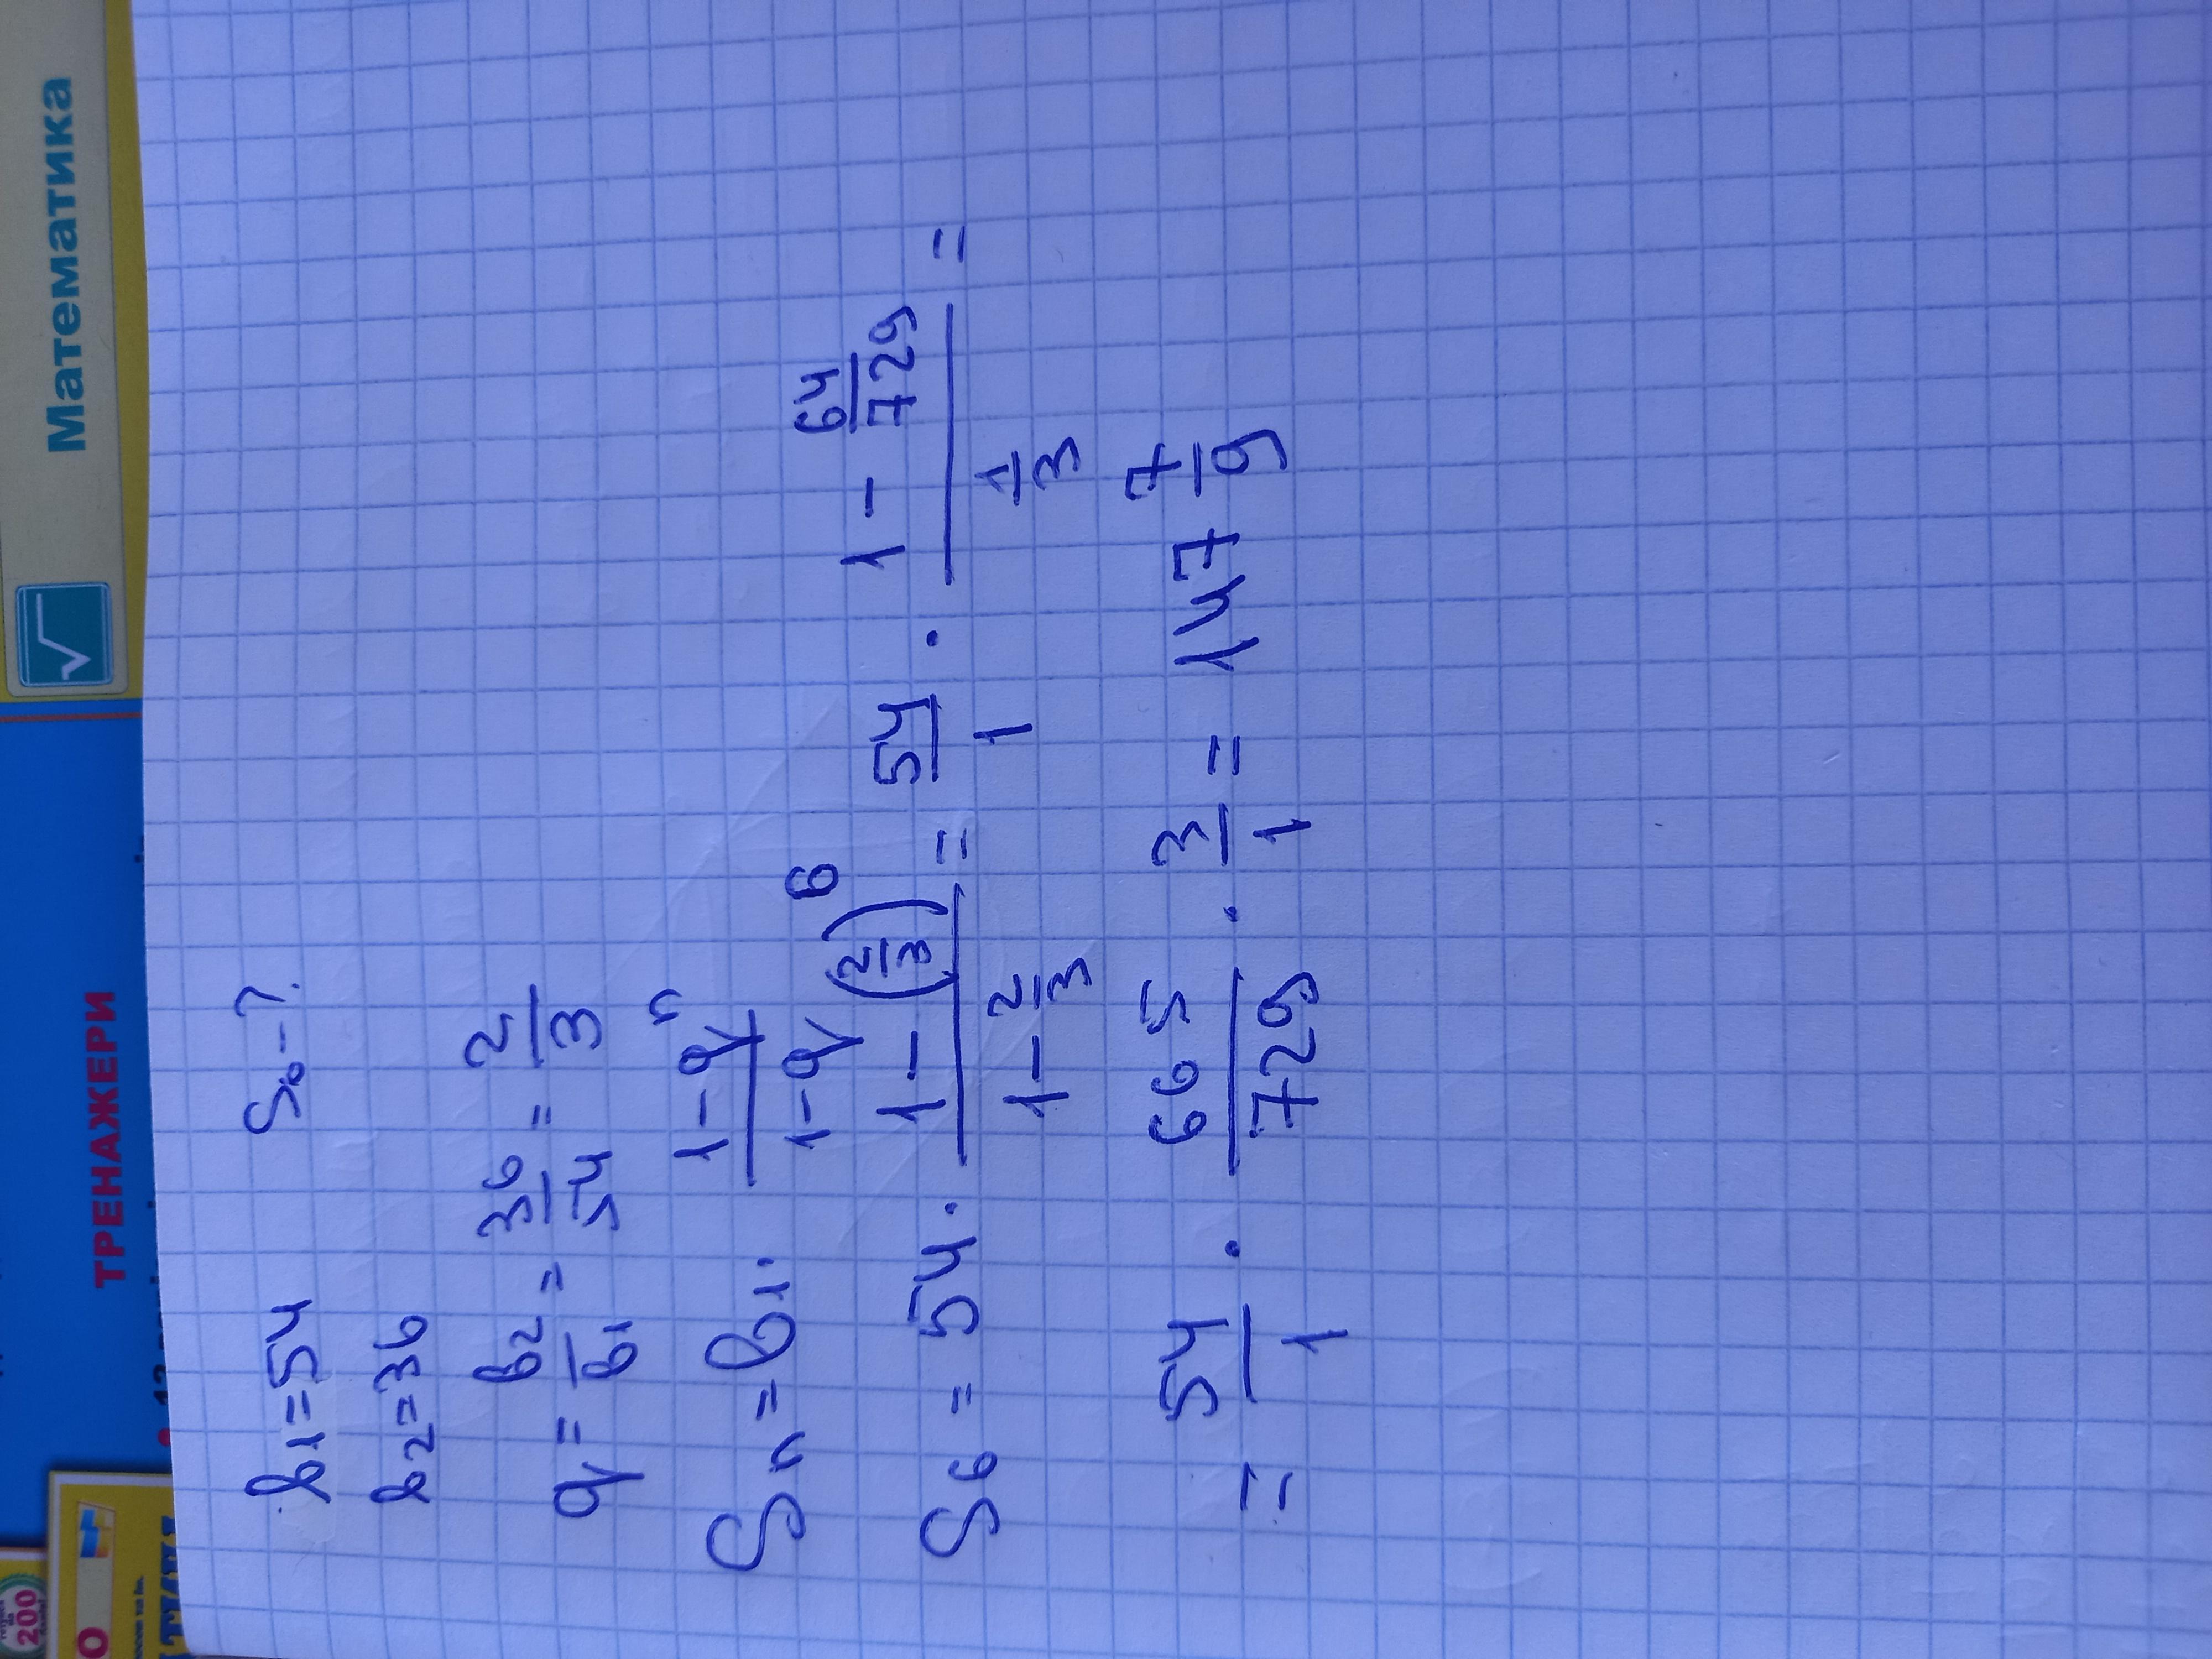 Математика
ТРЕНАЖЕРИ
200
b₁=54 S₆-?
b₂=36
q = b₂/b₁ = 36/54 = 2/3
Sₙ = b₁ · (1-qⁿ)/(1-q)
S₆ = 54 · (1-(2/3)⁶)/(1-2/3) = 54/1 · (1-64/729)/(1/3) =
= 54/1 · 665/729 · 3/1 = 147 7/9